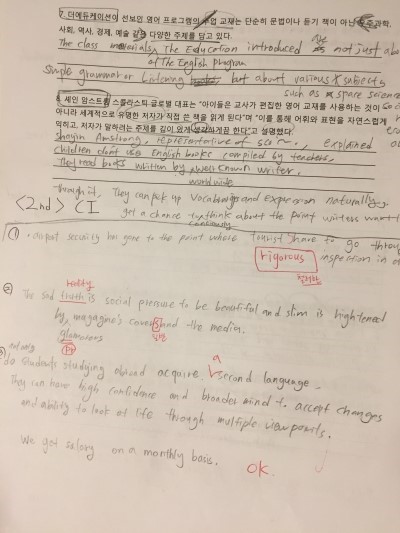 7. 더에듀케이션이 선보인 영어 프로그램의 수업 교재는 단순히 문법이나 듣기 책이 아닌 우주과학,
사회, 역사, 경제, 예술 같은 다양한 주제를 담고 있다.
The class materials The Education introduced are not just about
of The English program
simple grammar or listening but about various subjects
such as space science
8. 세인 암스트롱 스콜라스틱 글로벌 대표는 "아이들은 교사가 편집한 영어 교재를 사용하는 것이
아니라 세계적으로 유명한 저자가 직접 쓴 책을 읽게 된다"며 "이를 통해 어휘와 표현을 자연스럽게
익히고, 저자가 말하려는 주제를 깊이 있게 생각하게끔 한다"고 설명했다.
Amstrong, representative of explained
children don't use English books compiled by teachers,
They read books written by well known writer,
world wide
Through it, They can pick up vocabulary and expression naturally,
get a chance to think about the point writers want
<2nd> CI
① airport security has gone to the point where tourists have to go through
rigorous inspection in
철저한
reality
② The sad truth is social pressure to be beautiful and slim is heightened
by magazine's covers and the media.
glamorous
not only
③ do students studying abroad acquire a second language.
They can have high confidence and broaden mind to accept changes
and ability to look at life through multiple viewpoints.
We get salary on a monthly basis. OK.